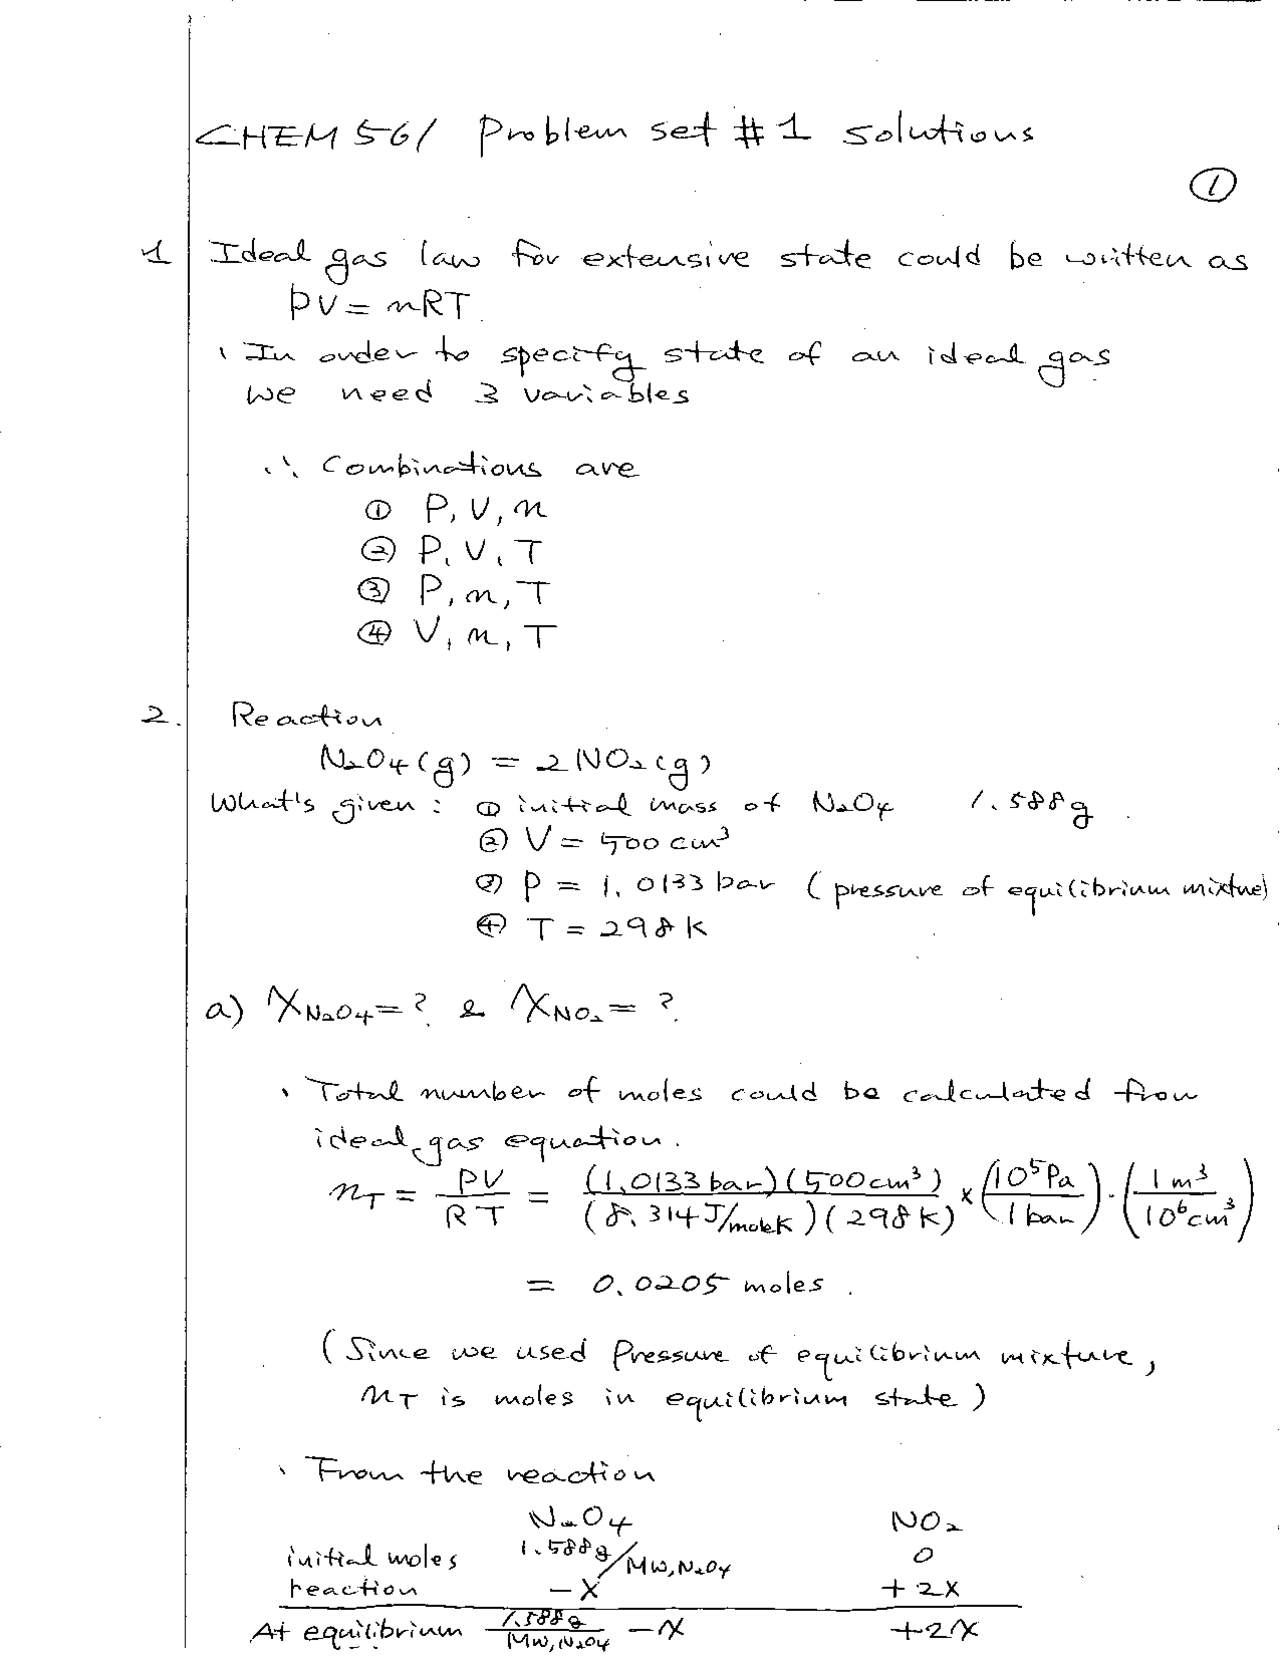 CHEM 561 Problem set #1 solutions
①
1 Ideal gas law for extensive state could be written as
PV = nRT.
· In order to specify state of an ideal gas
we need 3 variables
∴ Combinations are
① P, V, n
② P, V, T
③ P, n, T
④ V, n, T
2. Reaction
N₂O₄(g) = 2NO₂(g)
What's given : ① initial mass of N₂O₄ 1.588g.
② V = 500 cm³
③ P = 1.0133 bar (pressure of equilibrium mixture)
④ T = 298 K
a) X_N₂O₄ = ? & X_NO₂ = ?
· Total number of moles could be calculated from
ideal gas equation.
n_T = PV/RT = (1.0133 bar)(500 cm³)/(8.314 J/mole K)(298 K) × (10⁵ Pa/1 bar) · (1 m³/10⁶ cm³)
= 0.0205 moles.
(Since we used Pressure of equilibrium mixture,
n_T is moles in equilibrium state)
· From the reaction
N₂O₄ NO₂
initial moles 1.588g/MW,N₂O₄ 0
reaction -X +2X
At equilibrium 1.588g/MW,N₂O₄ - X +2X